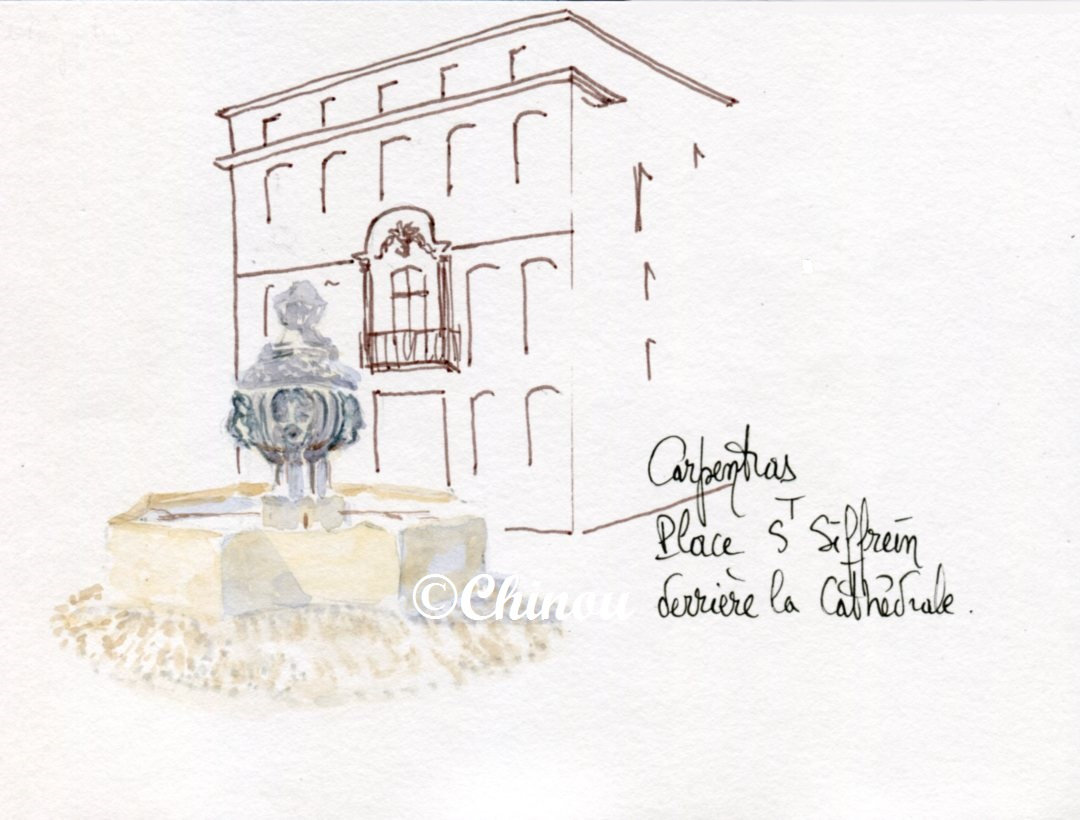 Carpentras
Place S^T Siffrein
derrière la Cathédrale.
©Chinou